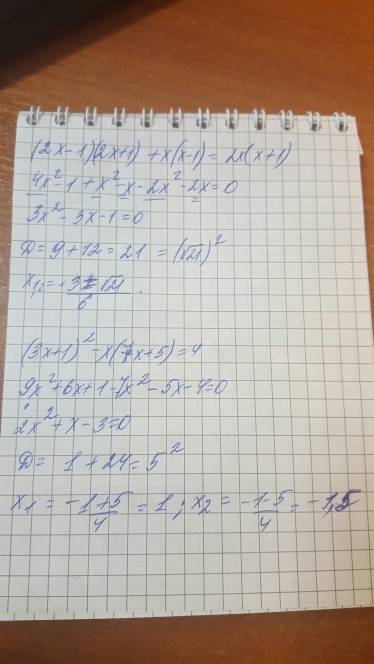 (2x-1)(2x+1) + x(x-1) = 2x(x+1)
4x² - 1 + x² - x - 2x² - 2x = 0
3x² - 3x - 1 = 0
D = 9 + 12 = 21 = (√21)²
x₁,₂ = +3±√21 / 6 .
(3x+1)² - x(7x+5) = 4
9x² + 6x + 1 - 7x² - 5x - 4 = 0
2x² + x - 3 = 0
D = 1 + 24 = 5²
x₁ = -1+5 / 4 = 1 ; x₂ = -1-5 / 4 = -1,5